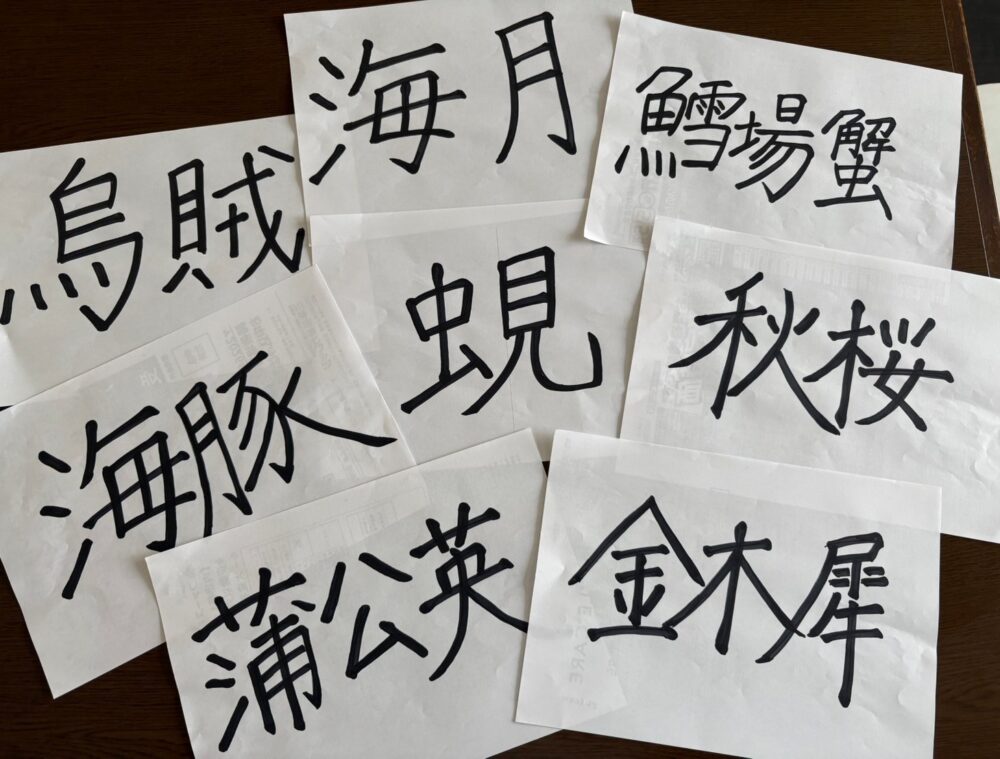 海月
鱈場蟹
烏賊
蜆
秋桜
海豚
蒲公英
金木犀